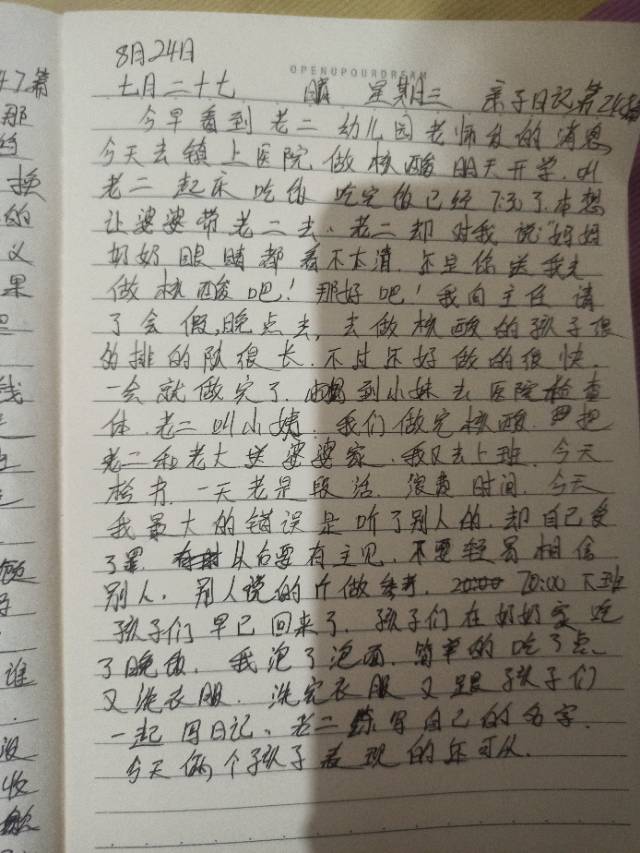 8月24日
OPENUPYOURDREAM
七月二十七 晴 星期三 亲子日记第
今早看到老二幼儿园老师发的消息
今天去镇上医院做核酸明天开学.叫
老二起床吃饭 吃完饭已经7:30了.本想
让婆婆带老二去、老二却对我说:妈妈
奶奶眼睛都看不太清.还是你送我去
做核酸吧!那好吧!我向主任请
了会假,晚点去,去做核酸的孩子很
多排的队很长.不过还好做的很快.
一会就做完了.到小妹去医院检查
体.老二叫小姨.我们做完核酸.把
老二和老大送婆婆家.我又去上班.今天
检书.一天老是段活.浪费时间.今天
我最大的错误是听了别人的.却自己受
了罪.从后要有主见.不要轻易相信
别人.别人说的只做参考.20:00下班
孩子们早已回来了.孩子们在奶奶家吃
了晚饭.我泡了泡面.简单的吃了点、
又洗衣服.洗完衣服又跟孩子们
一起写日记、老二练写自己的名字.
今天俩个孩子表现的还可以.
47篇
那
的
换
的
义
果
钱
谁
没
收